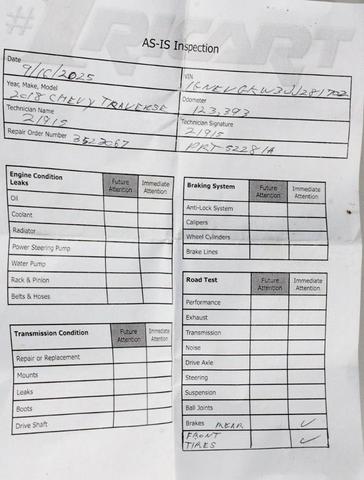 #RICART
AS-IS Inspection
Date
9/10/2025
VIN
Year, Make, Model
2018 CHEVY TRAVERSE
Odometer
123,393
Technician Name
21915
Technician Signature
21915
Repair Order Number 3523067
PRT 52281A
Engine Condition
Leaks
Future Attention
Immediate Attention
Oil
Coolant
Radiator
Power Steering Pump
Water Pump
Rack & Pinion
Belts & Hoses
Transmission Condition
Future Attention
Immediate Attention
Repair or Replacement
Mounts
Leaks
Boots
Drive Shaft
Braking System
Future Attention
Immediate Attention
Anti-Lock System
Calipers
Wheel Cylinders
Brake Lines
Road Test
Future Attention
Immediate Attention
Performance
Exhaust
Transmission
Noise
Drive Axle
Steering
Suspension
Ball Joints
Brakes REAR ✓
FRONT
TIRES ✓